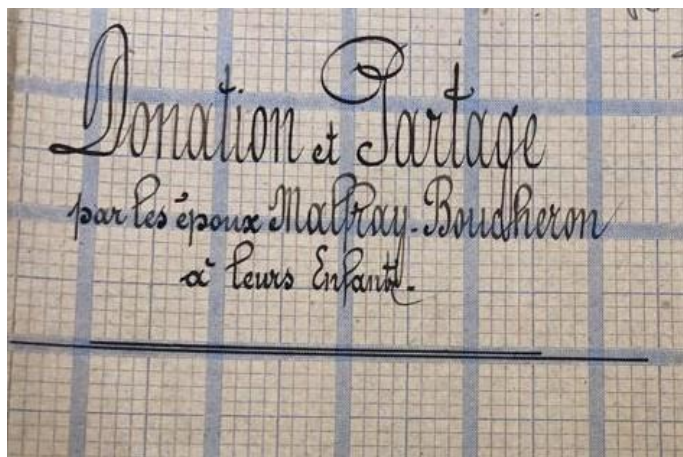 Donation et Partage
par les époux Malfray-Boucheron
à leurs Enfants.